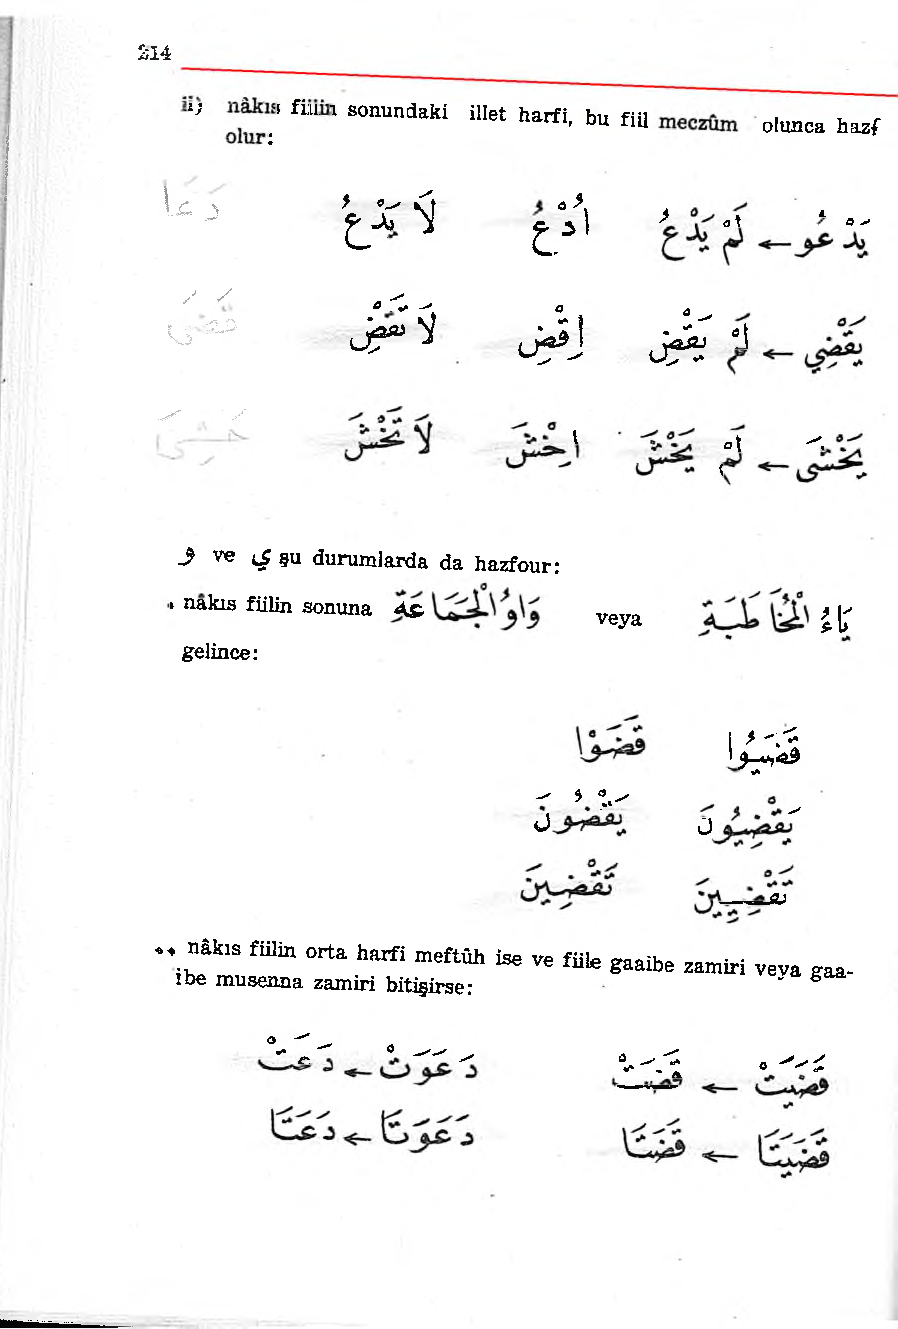 214
ii) nâkıs fiilin sonundaki illet harfi, bu fiil meczûm olunca hazf
olur:
يَدْعُو ← لَمْ يَدْعُ اُدْعُ لَا يَدْعُ دَعَا
يَقْضِي ← لَمْ يَقْضِ اِقْضِ لَا تَقْضِ قَضَى
يَخْشَى ← لَمْ يَخْشَ اِخْشَ لَا تَخْشَ خَشِىَ
و ve ي şu durumlarda da hazfour:
* nâkıs fiilin sonuna وَاوُ الْجَمَاعَةِ veya يَاءُ الْمُخَاطَبَةِ
gelince:
قَضَيُوا قَضَوْا
يَقْضِيُونَ يَقْضُونَ
تَقْضِيِينَ تَقْضِينَ
** nâkıs fiilin orta harfi meftûh ise ve fiile gaaibe zamiri veya gaa-
ibe musenna zamiri bitişirse:
قَضَيَتْ ← قَضَتْ دَعَوَتْ ← دَعَتْ
قَضَيَتَا ← قَضَتَا دَعَوَتَا ← دَعَتَا